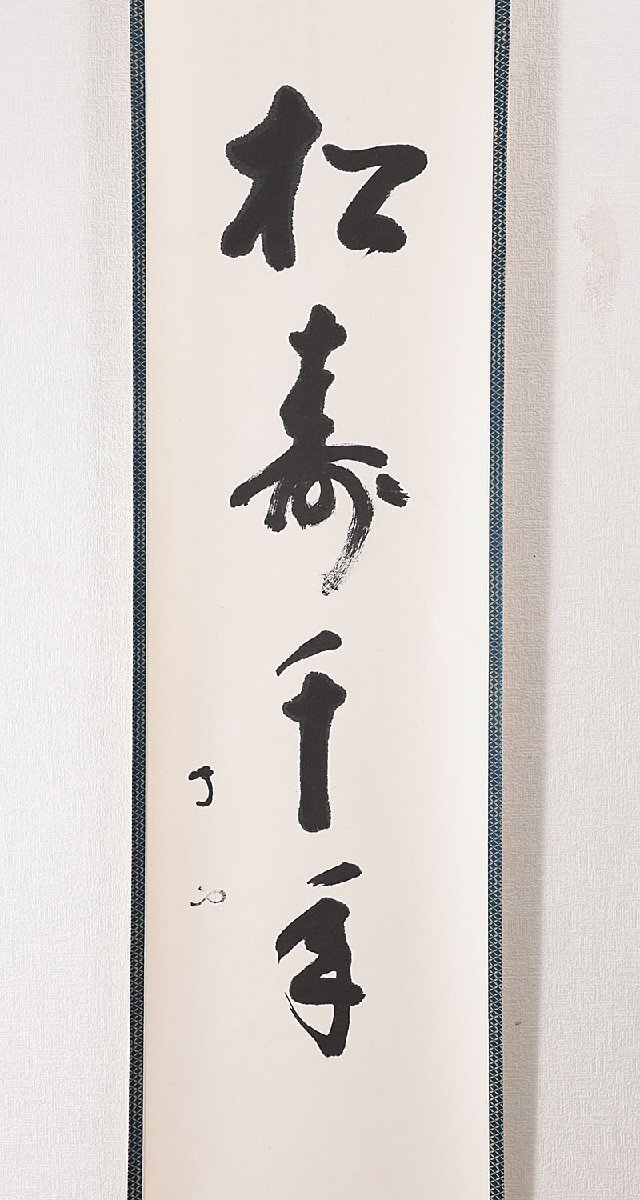 松寿千年